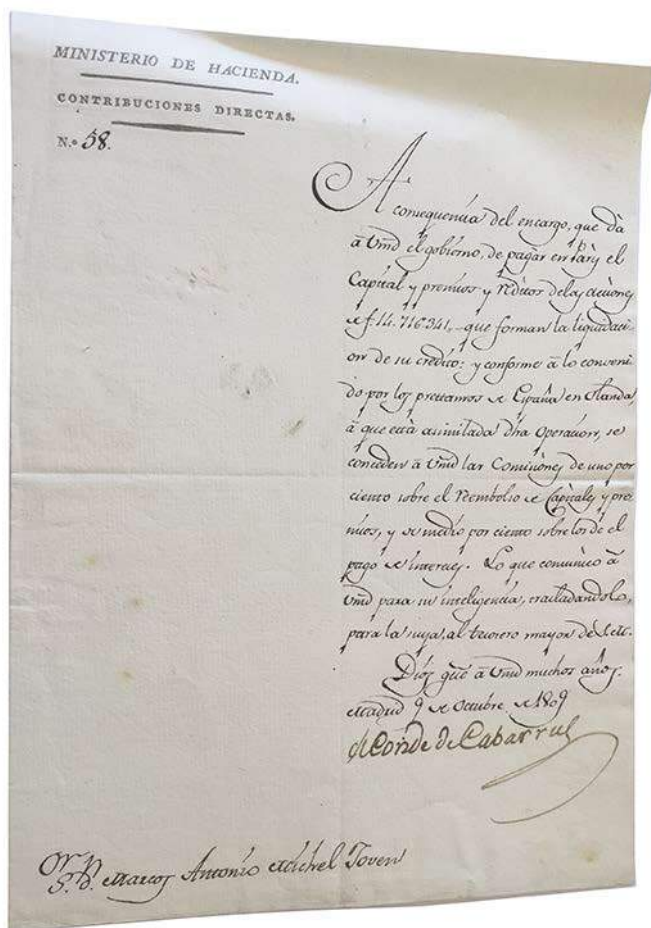 MINISTERIO DE HACIENDA.
CONTRIBUCIONES DIRECTAS.
N.º 58.
A consequencia del encargo, que dà
à Vmd el gobierno, de pagar en Parìs el
Capital y premios y réditos de las acciones
de f. 14.716.341,, que forman la liquidaci-
on de su crédito: y conforme à lo conveni-
do por los prestamos de España en Olanda,
à que està asimilada dha operacion, se
conceden à Vmd las Comisiones de uno por
ciento sobre el reembolso de Capitales y pre-
mios, y de medio por ciento sobre los de el
pago de intereses. Lo que comunico à
Vmd para su inteligencia, trasladandolo,
para la suya, al tesorero mayor de
Dios gue à Vmd muchos años.
Madrid 9 de Octubre de 1809
el Conde de Cabarrus
Sr. D. Marcos Antonio Michel Joven